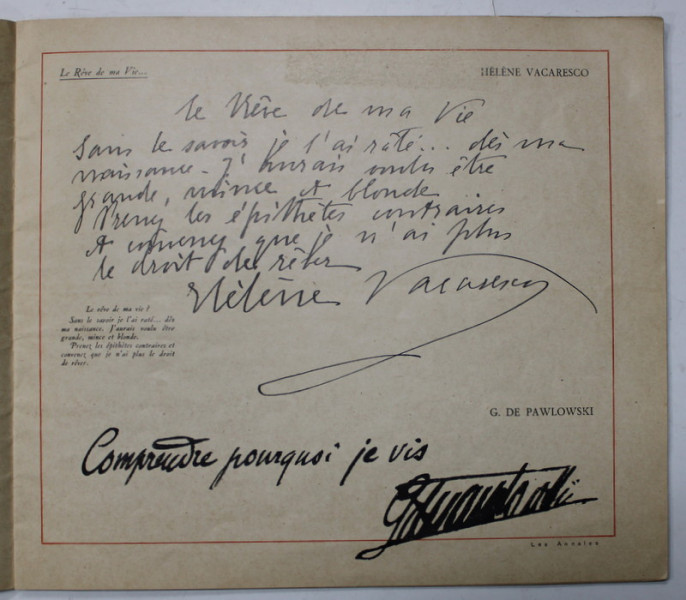 Le Rêve de ma Vie...
HÉLÈNE VACARESCO
Le Rêve de ma Vie
Sans le savoir je l'ai raté... dès ma
naissance. J'aurais voulu être
grande, mince et blonde
Prenez les épithètes contraires
et convenez que je n'ai plus
le droit de rêver
Hélène Vacaresco
Le rêve de ma vie ?
Sans le savoir je l'ai raté... dès
ma naissance. J'aurais voulu être
grande, mince et blonde.
Prenez les épithètes contraires et
convenez que je n'ai plus le droit
de rêver.
G. DE PAWLOWSKI
Comprendre pourquoi je vis
Les Annales